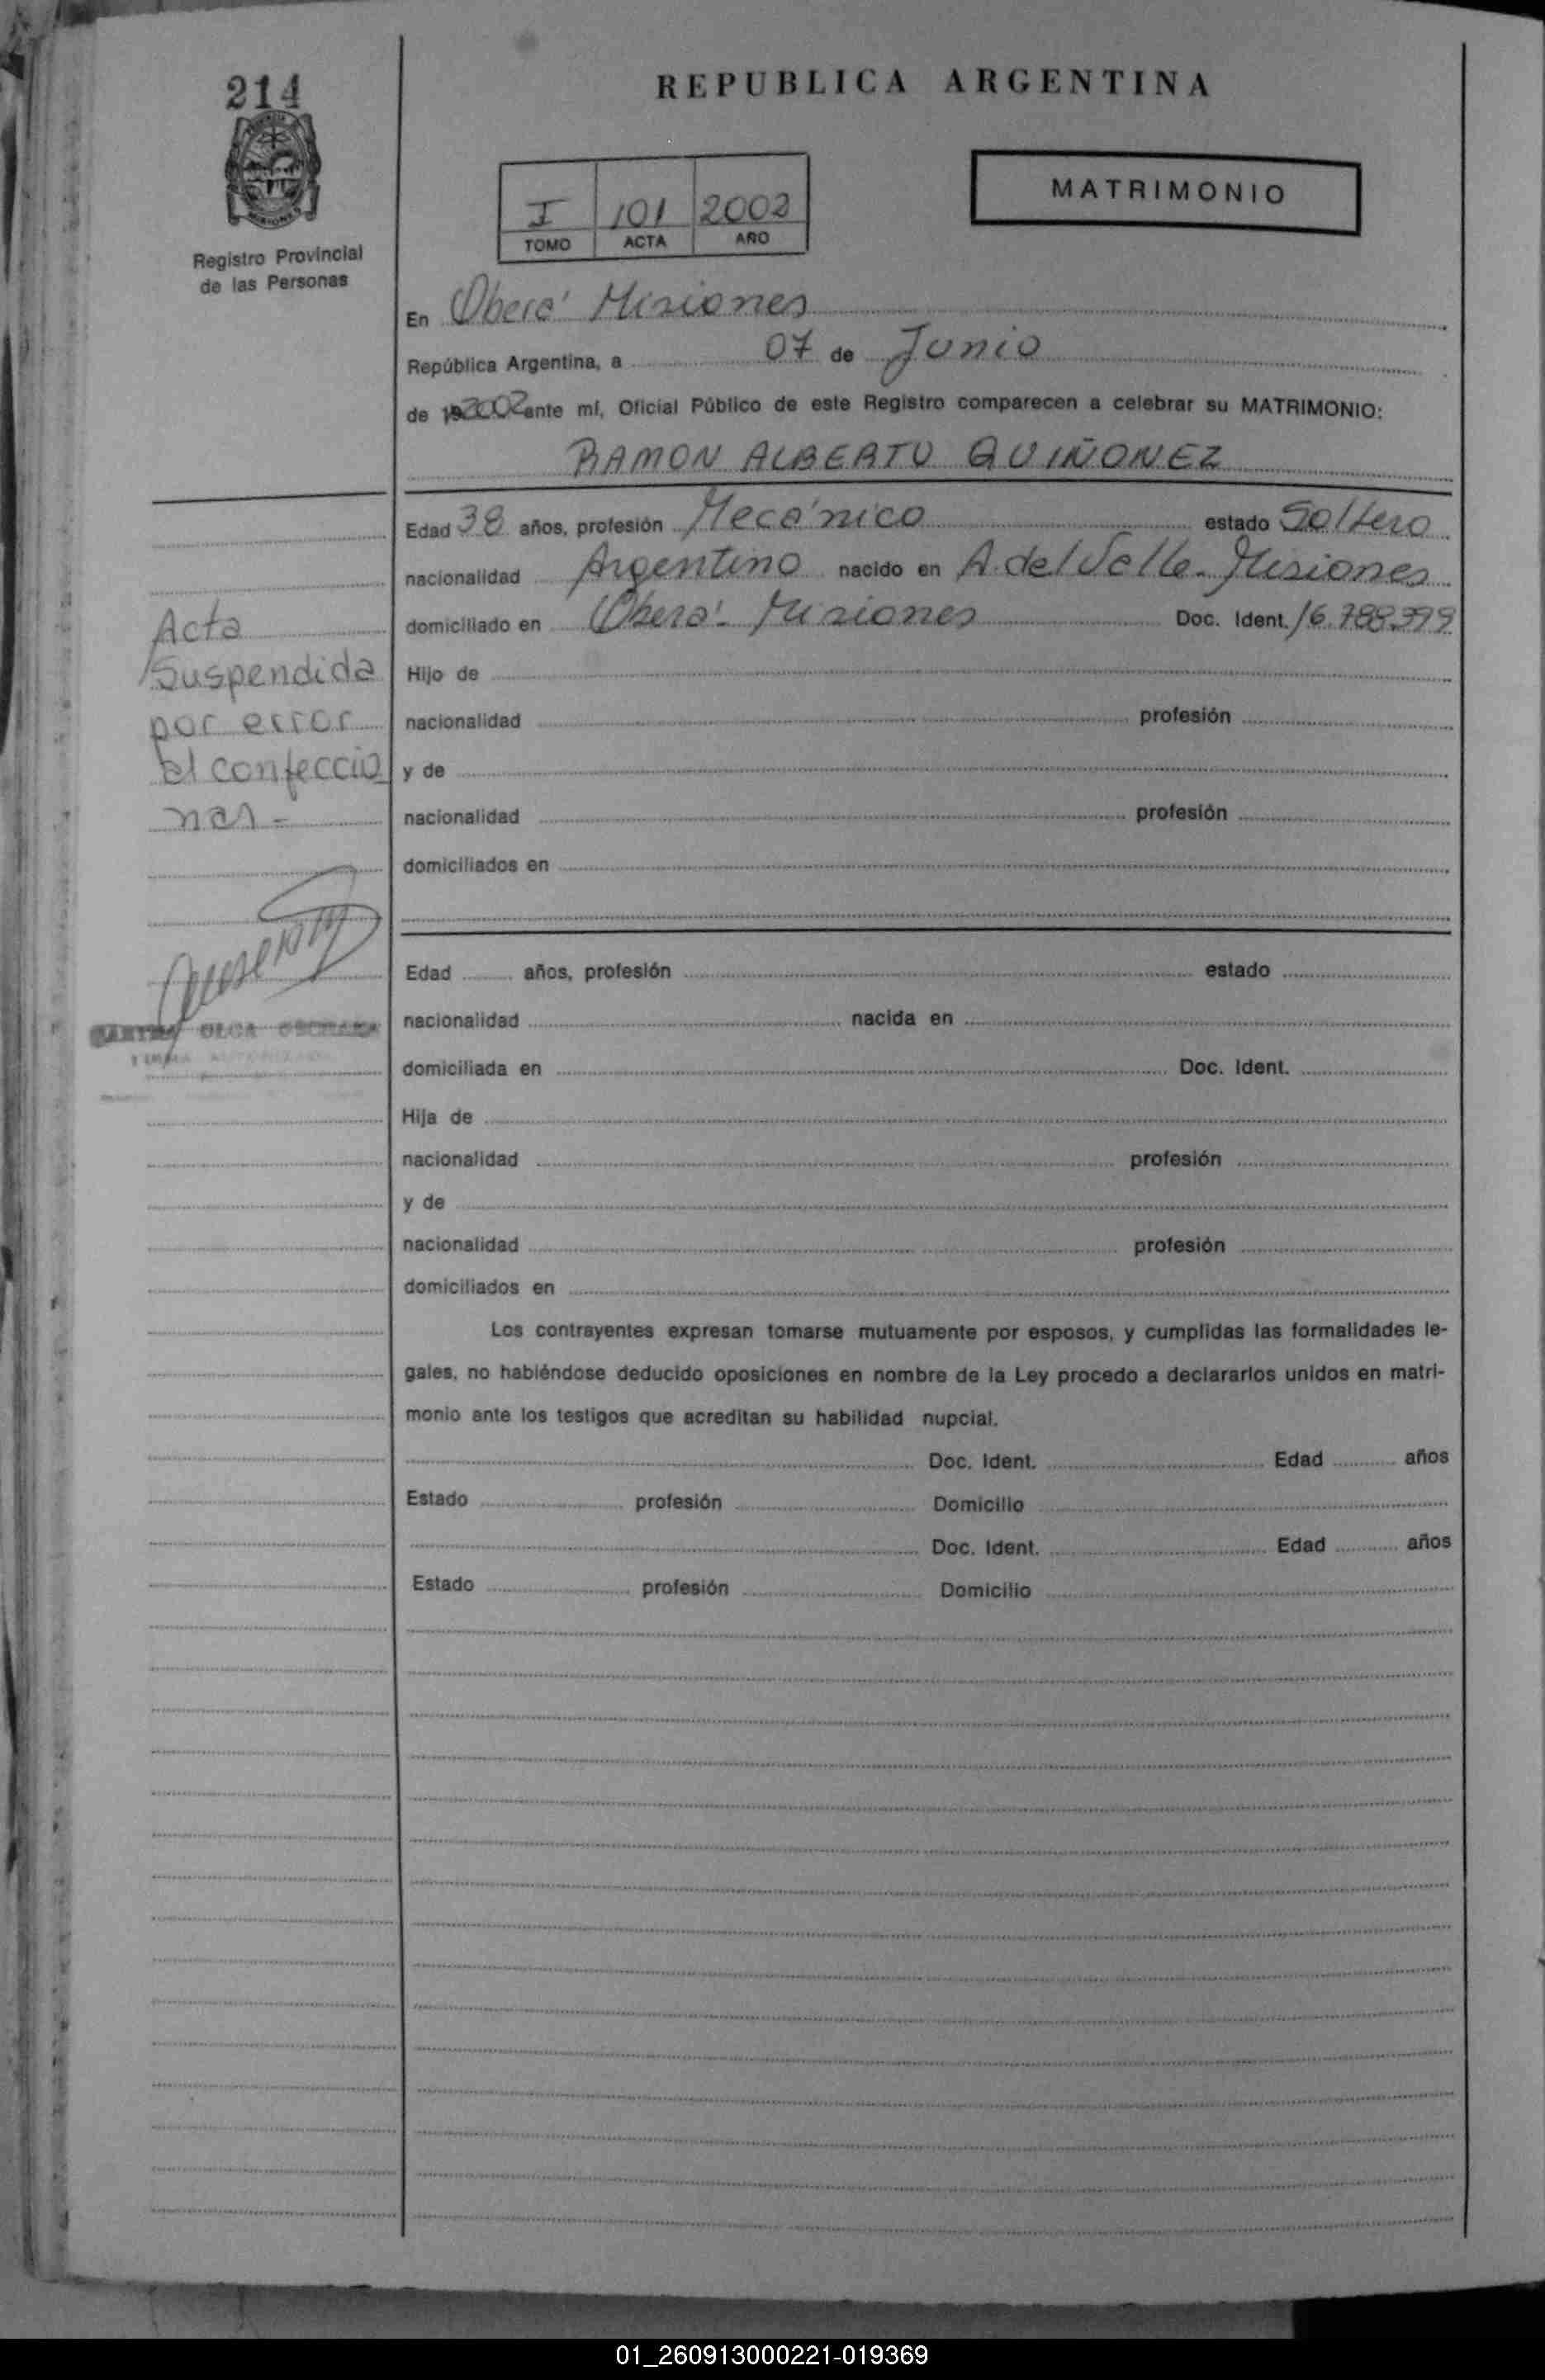 214
REPUBLICA ARGENTINA
MATRIMONIO
I 101 2002
TOMO ACTA AÑO
Registro Provincial
de las Personas
En Oberá Misiones
República Argentina, a 07 de Junio
de 2002 ante mí, Oficial Público de este Registro comparecen a celebrar su MATRIMONIO:
RAMON ALBERTO QUIÑONEZ
Edad 38 años, profesión Mecánico estado Soltero
nacionalidad Argentino nacido en A. del Valle - Misiones
domiciliado en Oberá - Misiones Doc. Ident. 16.788.399
Hijo de
nacionalidad profesión
y de
nacionalidad profesión
domiciliados en
Acta
Suspendida
por error
al confeccio
nar -
Edad años, profesión estado
nacionalidad nacida en
domiciliada en Doc. Ident.
Hija de
nacionalidad profesión
y de
nacionalidad profesión
domiciliados en
OLGA
Los contrayentes expresan tomarse mutuamente por esposos, y cumplidas las formalidades le-
gales, no habiéndose deducido oposiciones en nombre de la Ley procedo a declararlos unidos en matri-
monio ante los testigos que acreditan su habilidad nupcial.
Doc. Ident. Edad años
Estado profesión Domicilio
Doc. Ident. Edad años
Estado profesión Domicilio
01_260913000221-019369